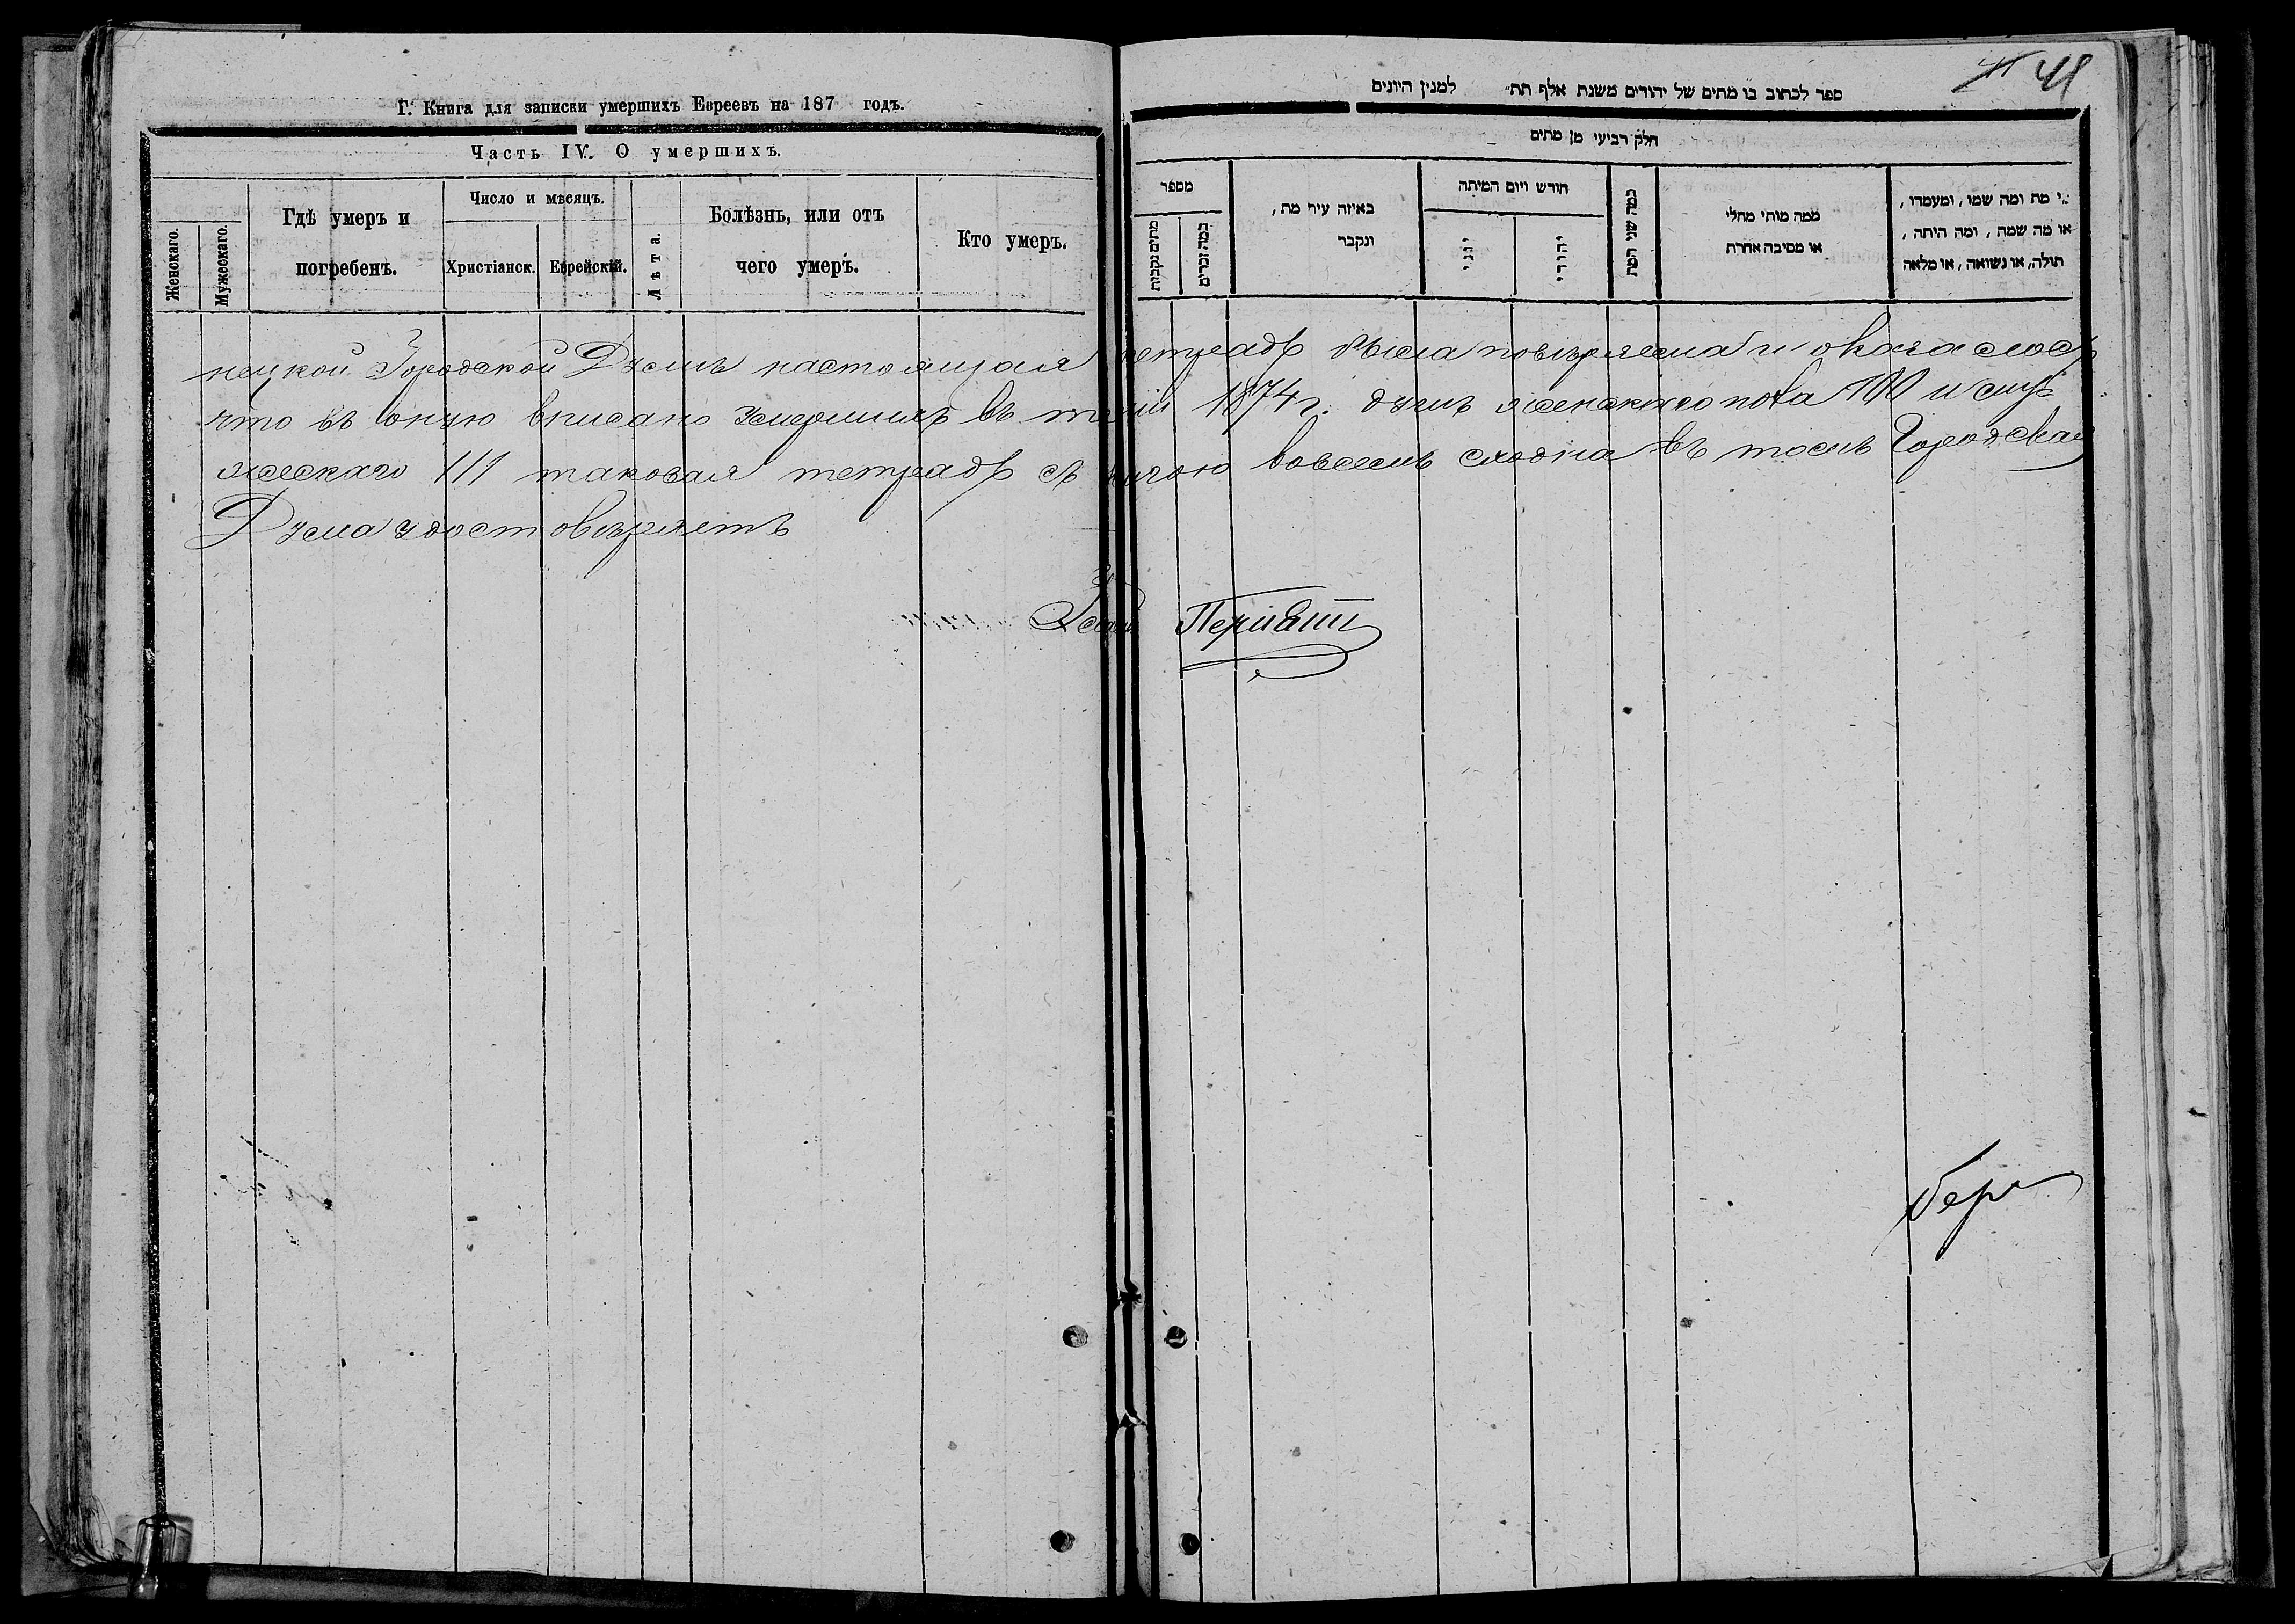 Г. Книга для записки умершихъ Евреевъ на 187 годъ.
Часть IV. О умершихъ.
Женскаго.
Мужескаго.
Гдѣ умеръ и
погребенъ.
Число и мѣсяцъ.
Христіанск.
Еврейскій.
Лѣта.
Болѣзнь, или отъ
чего умеръ.
Кто умеръ.
41 41
ספר לכתוב בו מתים של יהודים משנת אלף תת״ למנין היונים
חלק רביעי מן מתים
מספר
מתים נקבות
כמה זכרים
באיזה עיר מת,
ונקבר
חודש ויום המיתה
יוני
יהודי
כמה שני המת
ממה מותי מחלי
או מסיבה אחרת
מי מת ומה שמו, ומעמדו,
או מה שמה, ומה היתה,
תולה, או נשואה, או מלאה
нецкой Городской Думѣ настоящая тетрадь была повѣряема и оказалось
что въ оную вписано умершихъ въ 1874 г. душъ женскаго пола 100 и му-
жескаго 111 таковая тетрадь съ книгою вовсемъ сходна въ томъ Городская
Дума удостовѣряетъ